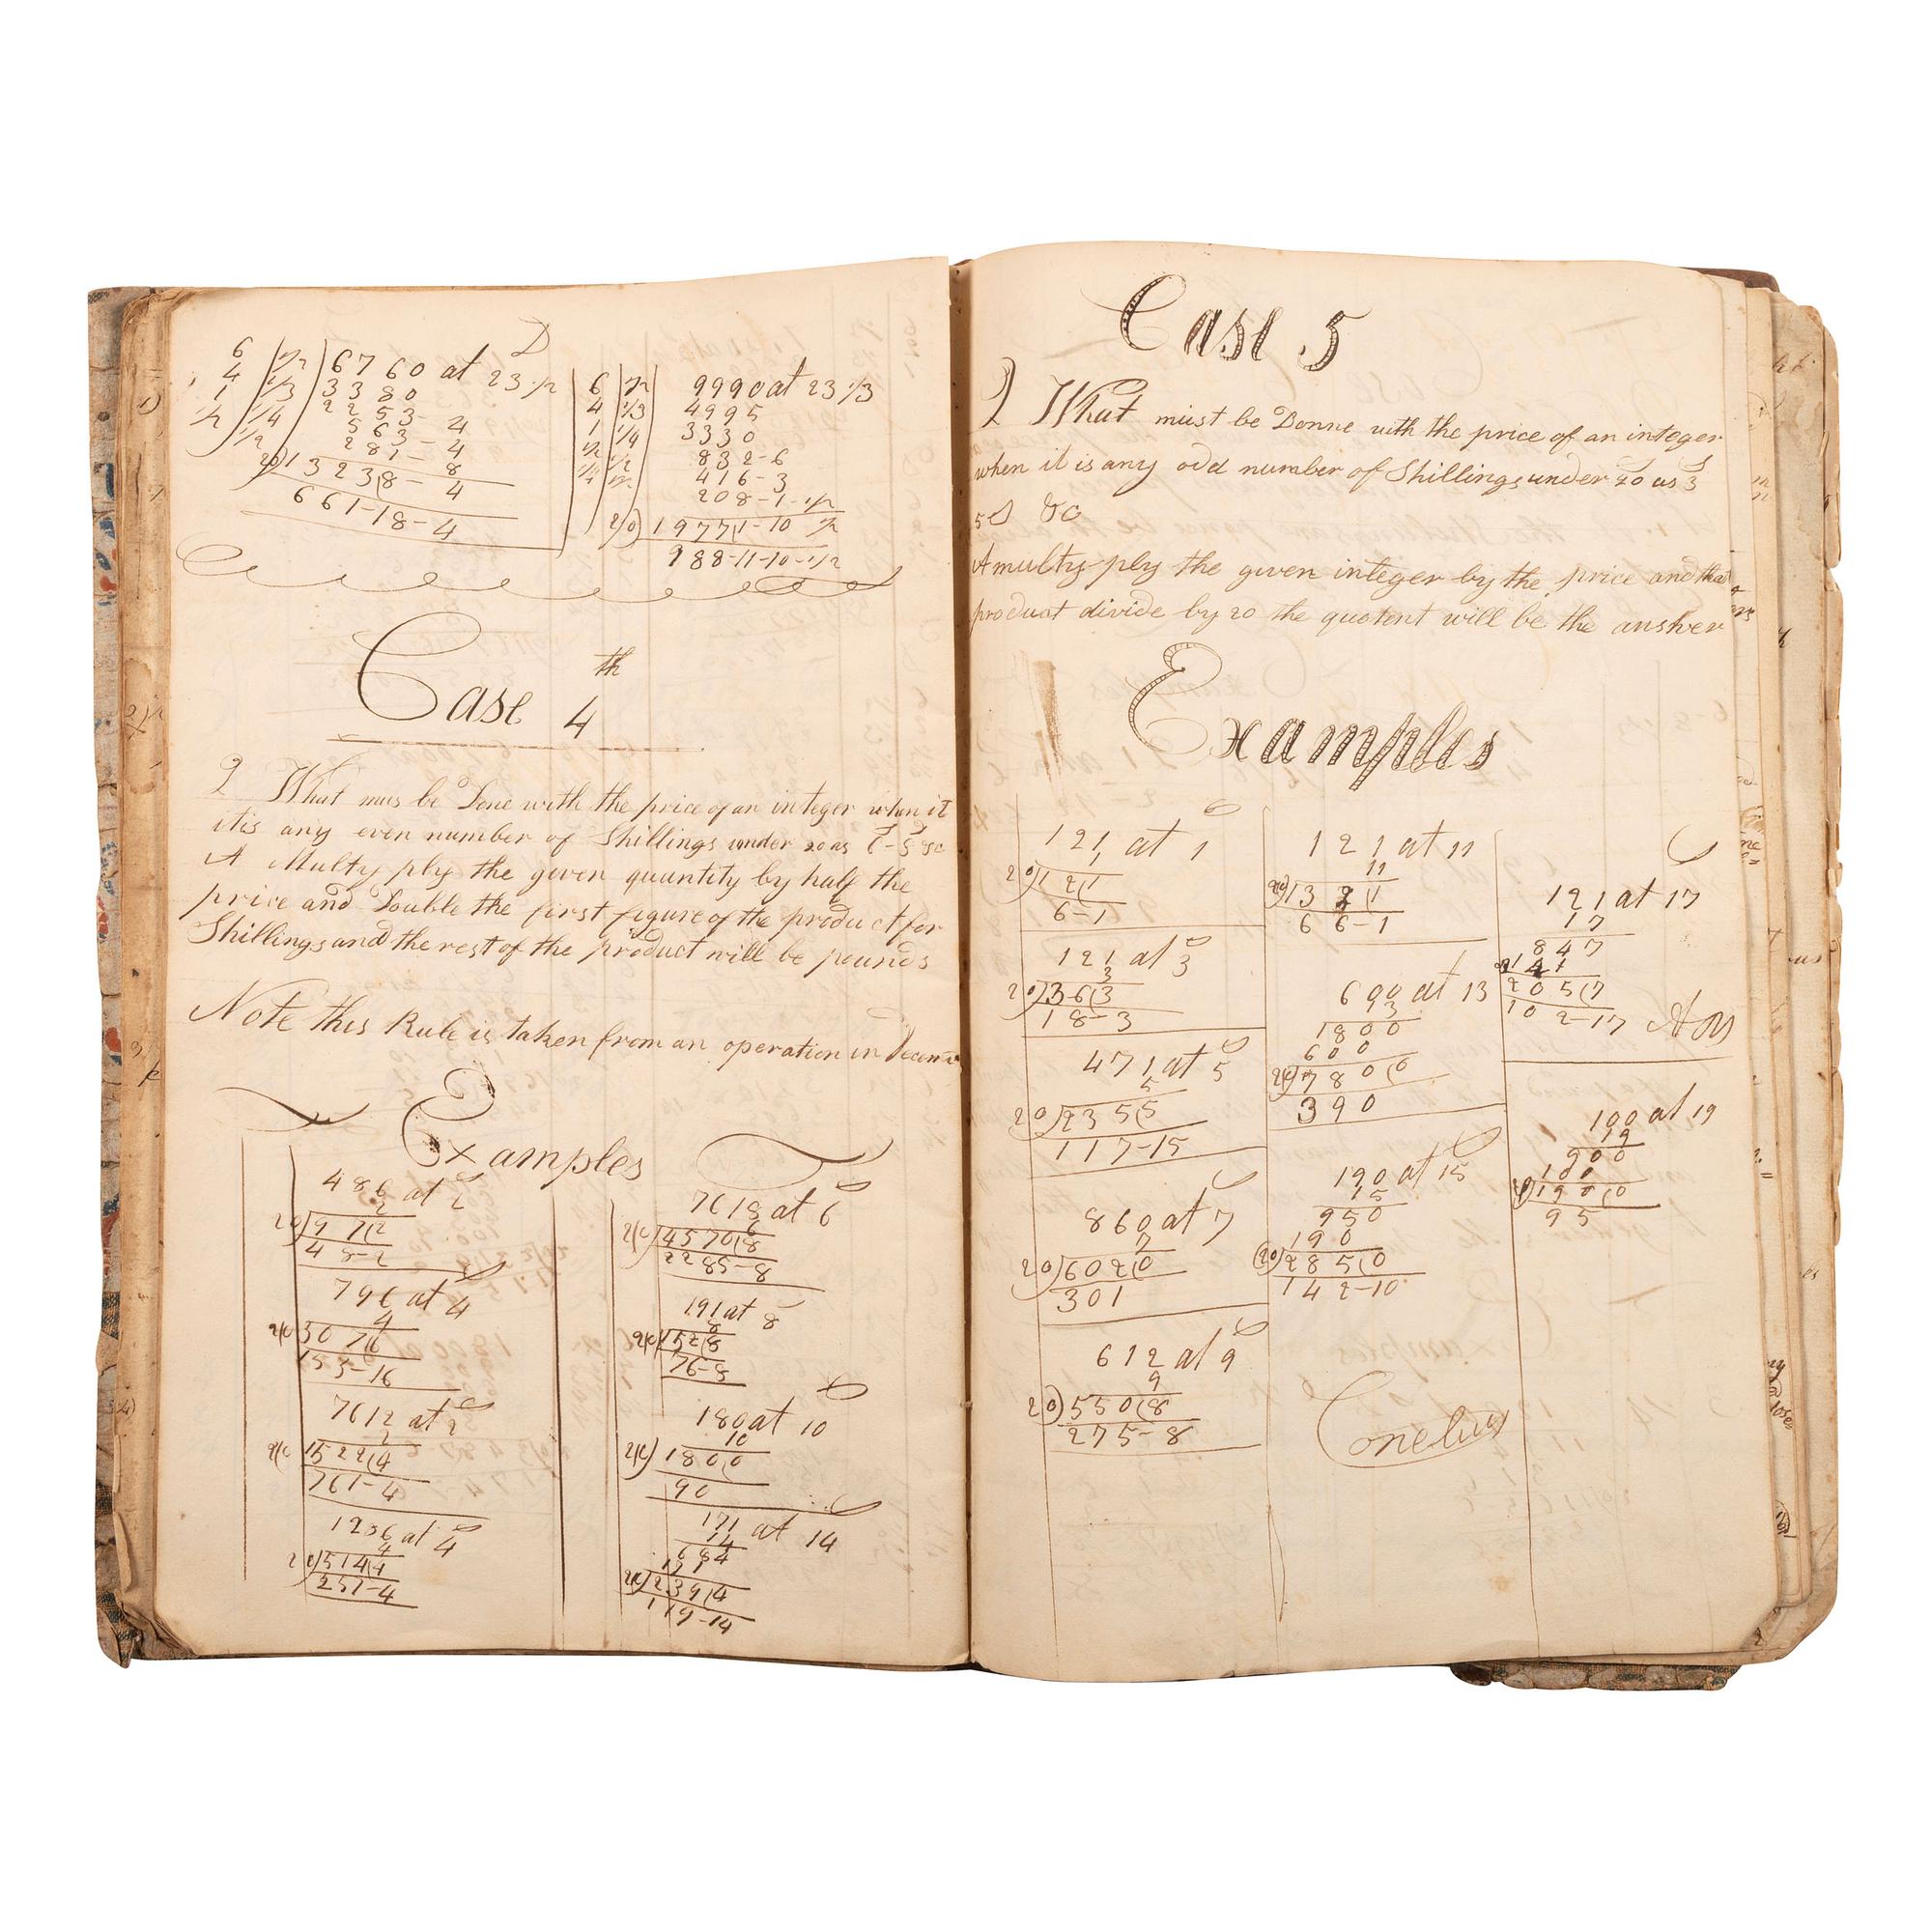 D
6 1/2 6760 at 23 1/2
4 1/3 3380
1 1/4 2253-4
1/2 1/2 563-4
281-8
20) 13238-4
661-18-4
6 1/2 9990 at 23 1/3
4 1/3 4995
1 1/4 3330
1/2 1/2 832-6
1/4 1/2 416-3
208-1-1/2
2/0) 19771-10 1/2
988-11-10-1/2
Case 4th
Q What mus be Done with the price of an integer when it
itis any even number of Shillings under 20 as
A Multy ply the given quantity by half the
price and Double the first figure of the product for
Shillings and the rest of the product will be pounds
Note this Rule is taken from an operation in
Examples
486 at 2
2
20) 97(2
48-2
at 4
4
2/0) 307(6
153-16
7612 at 2
2
2/0) 1522(4
761-4
at 4
4
20) 514(4
257-4
7618 at 6
6
2/0) 4570(8
2285-8
191 at 8
8
2/0) 152(8
76-8
180 at 10
10
2/0) 180(0
90
171 at 14
14
684
171
2/0) 239(4
119-14
Case 5
Q What must be Donne with the price of an integer
when it is any odd number of Shillings under 20 as 3
5 S &c
A multy ply the given integer by the price and that
product divide by 20 the quotent will be the answer
Examples
121 at 1
1
20) 12(1
6-1
121 at 3
3
20) 36(3
18-3
471 at 5
5
20) 235(5
117-15
860 at 7
7
20) 602(0
301
612 at 9
9
20) 550(8
275-8
121 at 11
11
20) 133(1
66-1
600 at 13
13
1800
600
20) 780(0
390
190 at 15
15
950
190
20) 285(0
142-10
Conelius
121 at 17
17
847
121
205(7
102-17 Ans
100 at 19
19
900
100
190(0
95